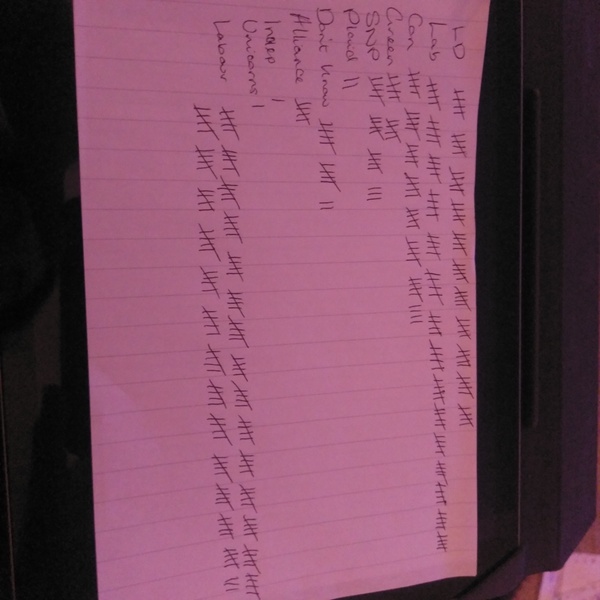 LD
Lab
Con
Green
SNP
Plaid II
Don't Know
Alliance
Indep I
Unicorns I
Labour